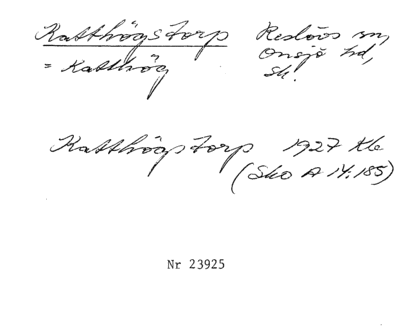 Katthögstorp Reslövs sn,
= Katthög Onsjö hd,
Sk.
Katthögstorp 1927 Kle
(Sko A 14.185)
Nr 23925